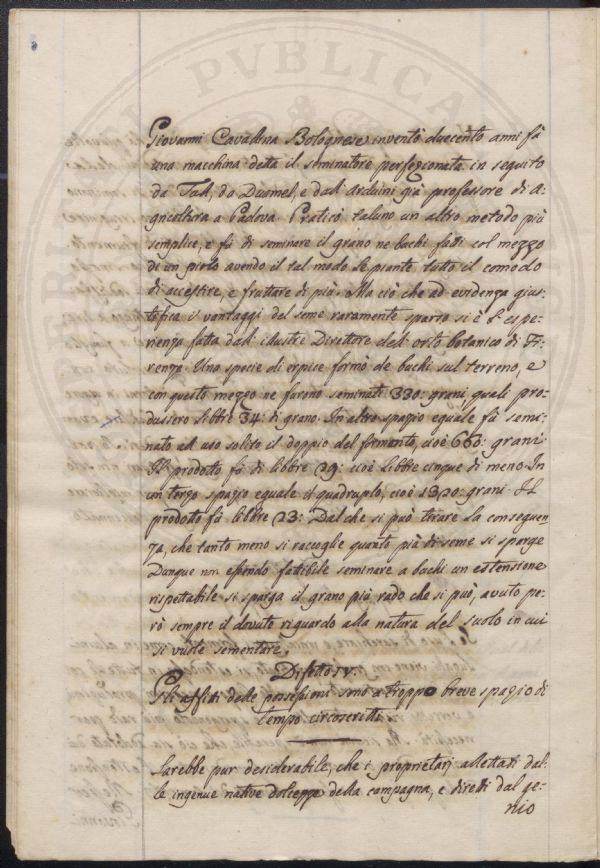 PVBLICA
Giovanni Cavallina Bolognese inventò duecento anni fà
una macchina detta il seminatore perfezionata in seguito
da Tull, da Duamel, e dall' Arduini già professore di A-
gricoltura a Padova Praticò taluno un altro metodo più
semplice, e fù di seminare il grano ne buchi fatti col mezzo
di un pirlo avendo il tal modo le piante tutto il comodo
di accestire, e fruttare di più. Ma ciò che ad evidenza gius-
tifica i vantaggi del seme raramente sparso si è l' espe-
rienza fatta dall' illustre Direttore dell' orto botanico di Fi-
renza. Una specie di erpice formò de buchi sul terreno, e
con questo mezzo ne furono seminati 330: grani quali pro-
dussero libbre 34: di grano. In altro spazio equale fù semi-
nato ad uso solito il doppio del formento, cioè 660: grani
Il prodotto fù di libbre 29: cioè libbre cinque di meno. In
un terzo spazio equale il quadruplo, cioè 1320: grani Il
prodotto fù libbre 23: Dal che si può tirare la conseguen-
za, che tanto meno si raccoglie quanto più di seme si sparge
Dunque non essendo fattibile seminare a buchi un estensione
rispettabile si sparga il grano più rado che si può, avuto pe-
rò sempre il dovuto riguardo alla natura del suolo in cui
si vuole sementare.
Difetto IV.
Gli affitti delle possessioni sono a troppo breve spazio di
tempo circoscritti
Sarebbe pur desiderabile, che i proprietarj allettati dal-
le ingenue native dolcezze della campagna, e diretti dal ge-
nio